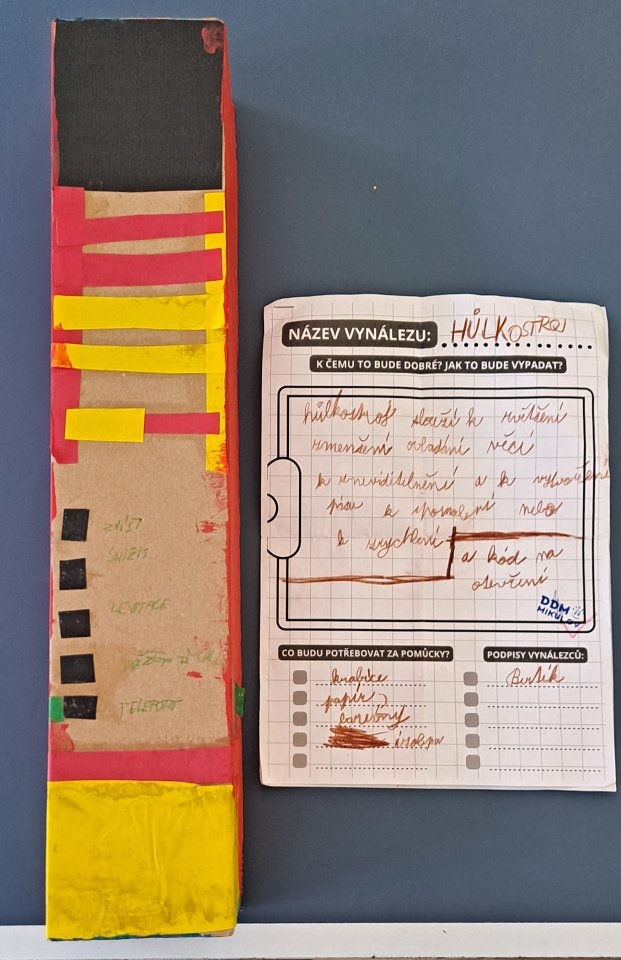 ZVÍŠT
SNÍŽIT
LEVITACE
TELEPORT
NÁZEV VYNÁLEZU: HŮLKOSTROJ
K ČEMU TO BUDE DOBRÉ? JAK TO BUDE VYPADAT?
hůlkostroj slouží k zvětšení
zmenšení ovládání věcí
k zneviditelnění a k vytvoření
k zpomalení nebo
k zrychlení
a kód na
otevření
DDM
MIKULOV
CO BUDU POTŘEBOVAT ZA POMŮCKY?
krabice
papír
barevný
izolepu
PODPISY VYNÁLEZCŮ:
Bertík